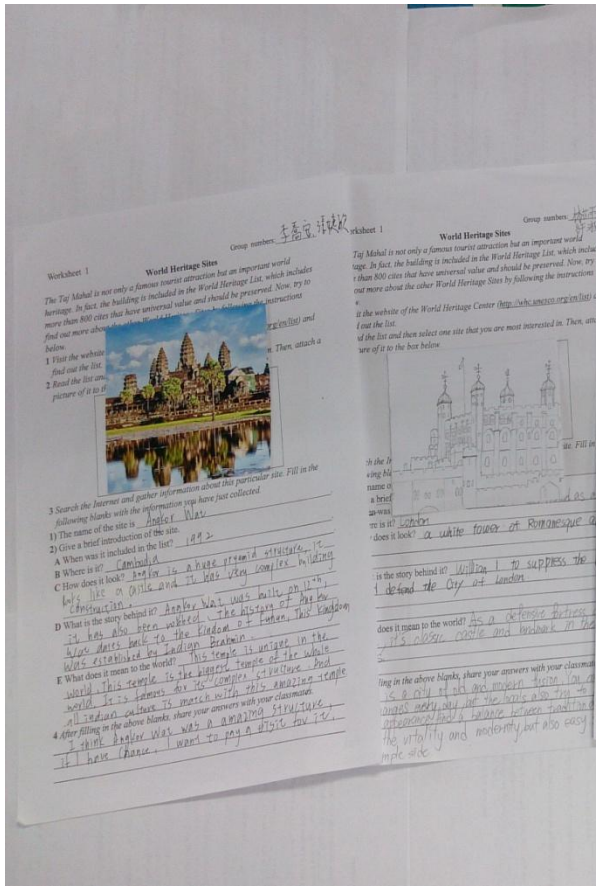 Group numbers: 李嘉宝
Worksheet 1
World Heritage Sites
The Taj Mahal is not only a famous tourist attraction but an important world
heritage. In fact, the building is included in the World Heritage List, which includes
more than 800 cites that have universal value and should be preserved. Now, try to
find out more about the other World Heritage Sites by following the instructions
below.
1 Visit the website org/en/list) and
find out the list.
2 Read the list and n. Then, attach a
picture of it to
3 Search the Internet and gather information about this particular site. Fill in the
following blanks with the information you have just collected.
1) The name of the site is Angkor Wat
2) Give a brief introduction of the site.
A When was it included in the list? 1992
B Where is it? Cambodia
C How does it look? Angkor is a huge pyramid structure, it
looks like a castle and it has very complex building
construction.
D What is the story behind it? Angkor Wat was built on 12th,
it has also been The history of Angkor
Wat dates back to the Kindom of Funan, This kingdom
was established by Indian Brahmin.
E What does it mean to the world? This temple is unique in the
world. This temple is the biggest temple of the whole
world. It is famous for its complex structure. And
all indian culture is match with this amazing temple
4 After filling in the above blanks, share your answers with your classmates.
I think Angkor Wat was a amazing structure,
if I have chance, I want to pay a visit for it.
Group numbers:
rksheet 1
World Heritage Sites
Taj Mahal is not only a famous tourist attraction but an important world
tage. In fact, the building is included in the World Heritage List, which inclu
e than 800 cites that have universal value and should be preserved. Now, try
out more about the other World Heritage Sites by following the instructions
w.
it the website of the World Heritage Center (http://whc.unesco.org/en/list)
d out the list.
d the list and then select one site that you are most interested in. Then, atta
ure of it to the box below.
h the I site. Fill in
wing bl
name o
a brief
n was
re is it? London
does it look? a white tower of Romanesque a
is the story behind it? William I to suppress the
defend the City of London
does it mean to the world? As a defensive fortress
it's classic castle and landmark in the
ling in the above blanks, share your answers with your classmat
is a city of old and modern fusion. You c
anges every day but the locals also try to
appearance. Find a balance between tradition a
the vitality and modernity, but also easy
mple side